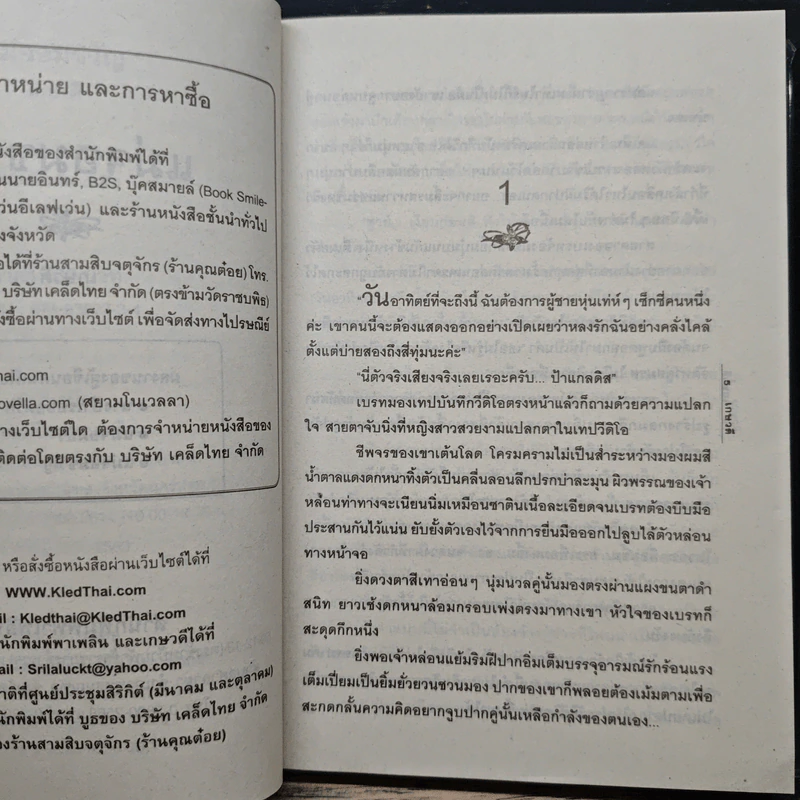 าหน่าย และการหาซื้อ
นังสือของสำนักพิมพ์ได้ที่
นนายอินทร์, B2S, บุ๊คสมายล์ (Book Smile-
ว่นอีเลฟเว่น) และร้านหนังสือชั้นนำทั่วไป
งจังหวัด
อได้ที่ร้านสามสิบจตุจักร (ร้านคุณต๋อย) โทร.
บริษัท เคล็ดไทย จำกัด (ตรงข้ามวัดราชบพิธ)
งซื้อผ่านทางเว็บไซต์ เพื่อจัดส่งทางไปรษณีย์
hai.com
ovella.com (สยามโนเวลลา)
างเว็บไซต์ใด ต้องการจำหน่ายหนังสือของ
ติดต่อโดยตรงกับ บริษัท เคล็ดไทย จำกัด
หรือสั่งซื้อหนังสือผ่านเว็บไซต์ได้ที่
WWW.KledThai.com
il : Kledthai@KledThai.com
นักพิมพ์พาเพลิน และเกษวดีได้ที่
ail : Srilaluckt@yahoo.com
าติที่ศูนย์ประชุมสิริกิติ์ (มีนาคม และตุลาคม)
นักพิมพ์ได้ที่ บูธของ บริษัท เคล็ดไทย จำกัด
งร้านสามสิบจตุจักร (ร้านคุณต๋อย)
1
"วันอาทิตย์ที่จะถึงนี้ ฉันต้องการผู้ชายหุ่นเท่ห์ๆ เซ็กซี่คนหนึ่ง
ค่ะ เขาคนนี้จะต้องแสดงออกอย่างเปิดเผยว่าหลงรักฉันอย่างคลั่งไคล้
ตั้งแต่บ่ายสองถึงสี่ทุ่มนะค่ะ"
"นี่ตัวจริงเสียงจริงเลยเรอะครับ... ป้าแกลดิส"
เบรทมองเทปบันทึกวีดิโอตรงหน้าแล้วก็ถามด้วยความแปลก
ใจ สายตาจับนิ่งที่หญิงสาวสวยงามแปลกตาในเทปวีดิโอ
ชีพจรของเขาเต้นโลด โครมครามไม่เป็นส่ำระหว่างมองผมสี
น้ำตาลแดงดกหนาทิ้งตัวเป็นคลื่นลอนลึกปรกบ่าละมุน ผิวพรรณของเจ้า
หล่อนท่าทางจะเนียนนิ่มเหมือนซาตินเนื้อละเอียดจนเบรทต้องบีบมือ
ประสานกันไว้แน่น ยับยั้งตัวเองไว้จากการยื่นมือออกไปลูบไล้ตัวหล่อน
ทางหน้าจอ
ยิ่งดวงตาสีเทาอ่อนๆ นุ่มนวลคู่นั้นมองตรงผ่านแผงขนตาดำ
สนิท ยาวเช้งดกหนาล้อมกรอบเพ่งตรงมาทางเขา หัวใจของเบรทก็
สะดุดกึกหนึ่ง
ยิ่งพอเจ้าหล่อนแย้มริมฝีปากอิ่มเต็มบรรจุอารมณ์รักร้อนแรง
เต็มเปี่ยมเป็นยิ้มยั่วยวนชวนมอง ปากของเขาก็พลอยต้องเม้มตามเพื่อ
สะกดกลั้นความคิดอยากจูบปากคู่นั้นเหลือกำลังของตนเอง...
๕
เกษวดี